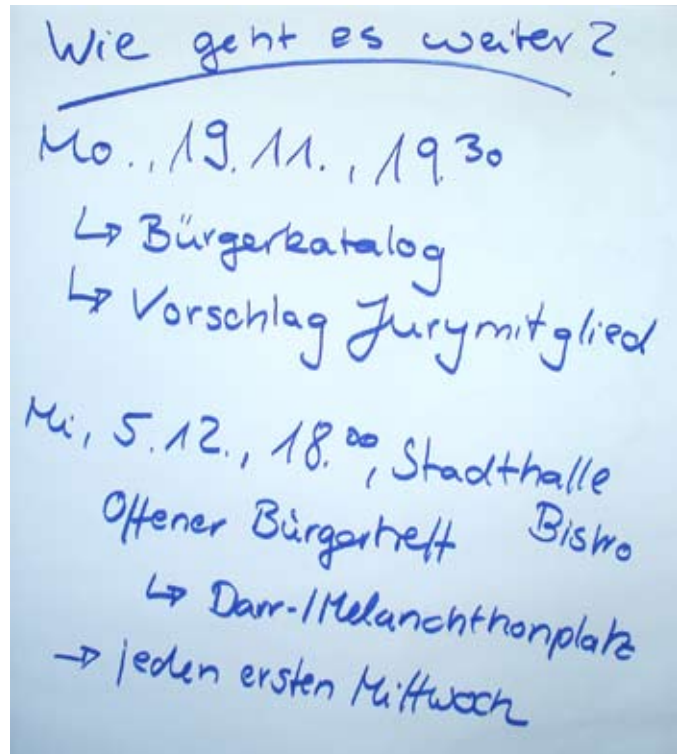 Wie geht es weiter?
Mo., 19.11., 19.30
↳ Bürgerkatalog
↳ Vorschlag Jurymitglied
Mi, 5.12., 18.00, Stadthalle
Offener Bürgertreff Bistro
↳ Darr-/Melanchthonplatz
→ jeden ersten Mittwoch